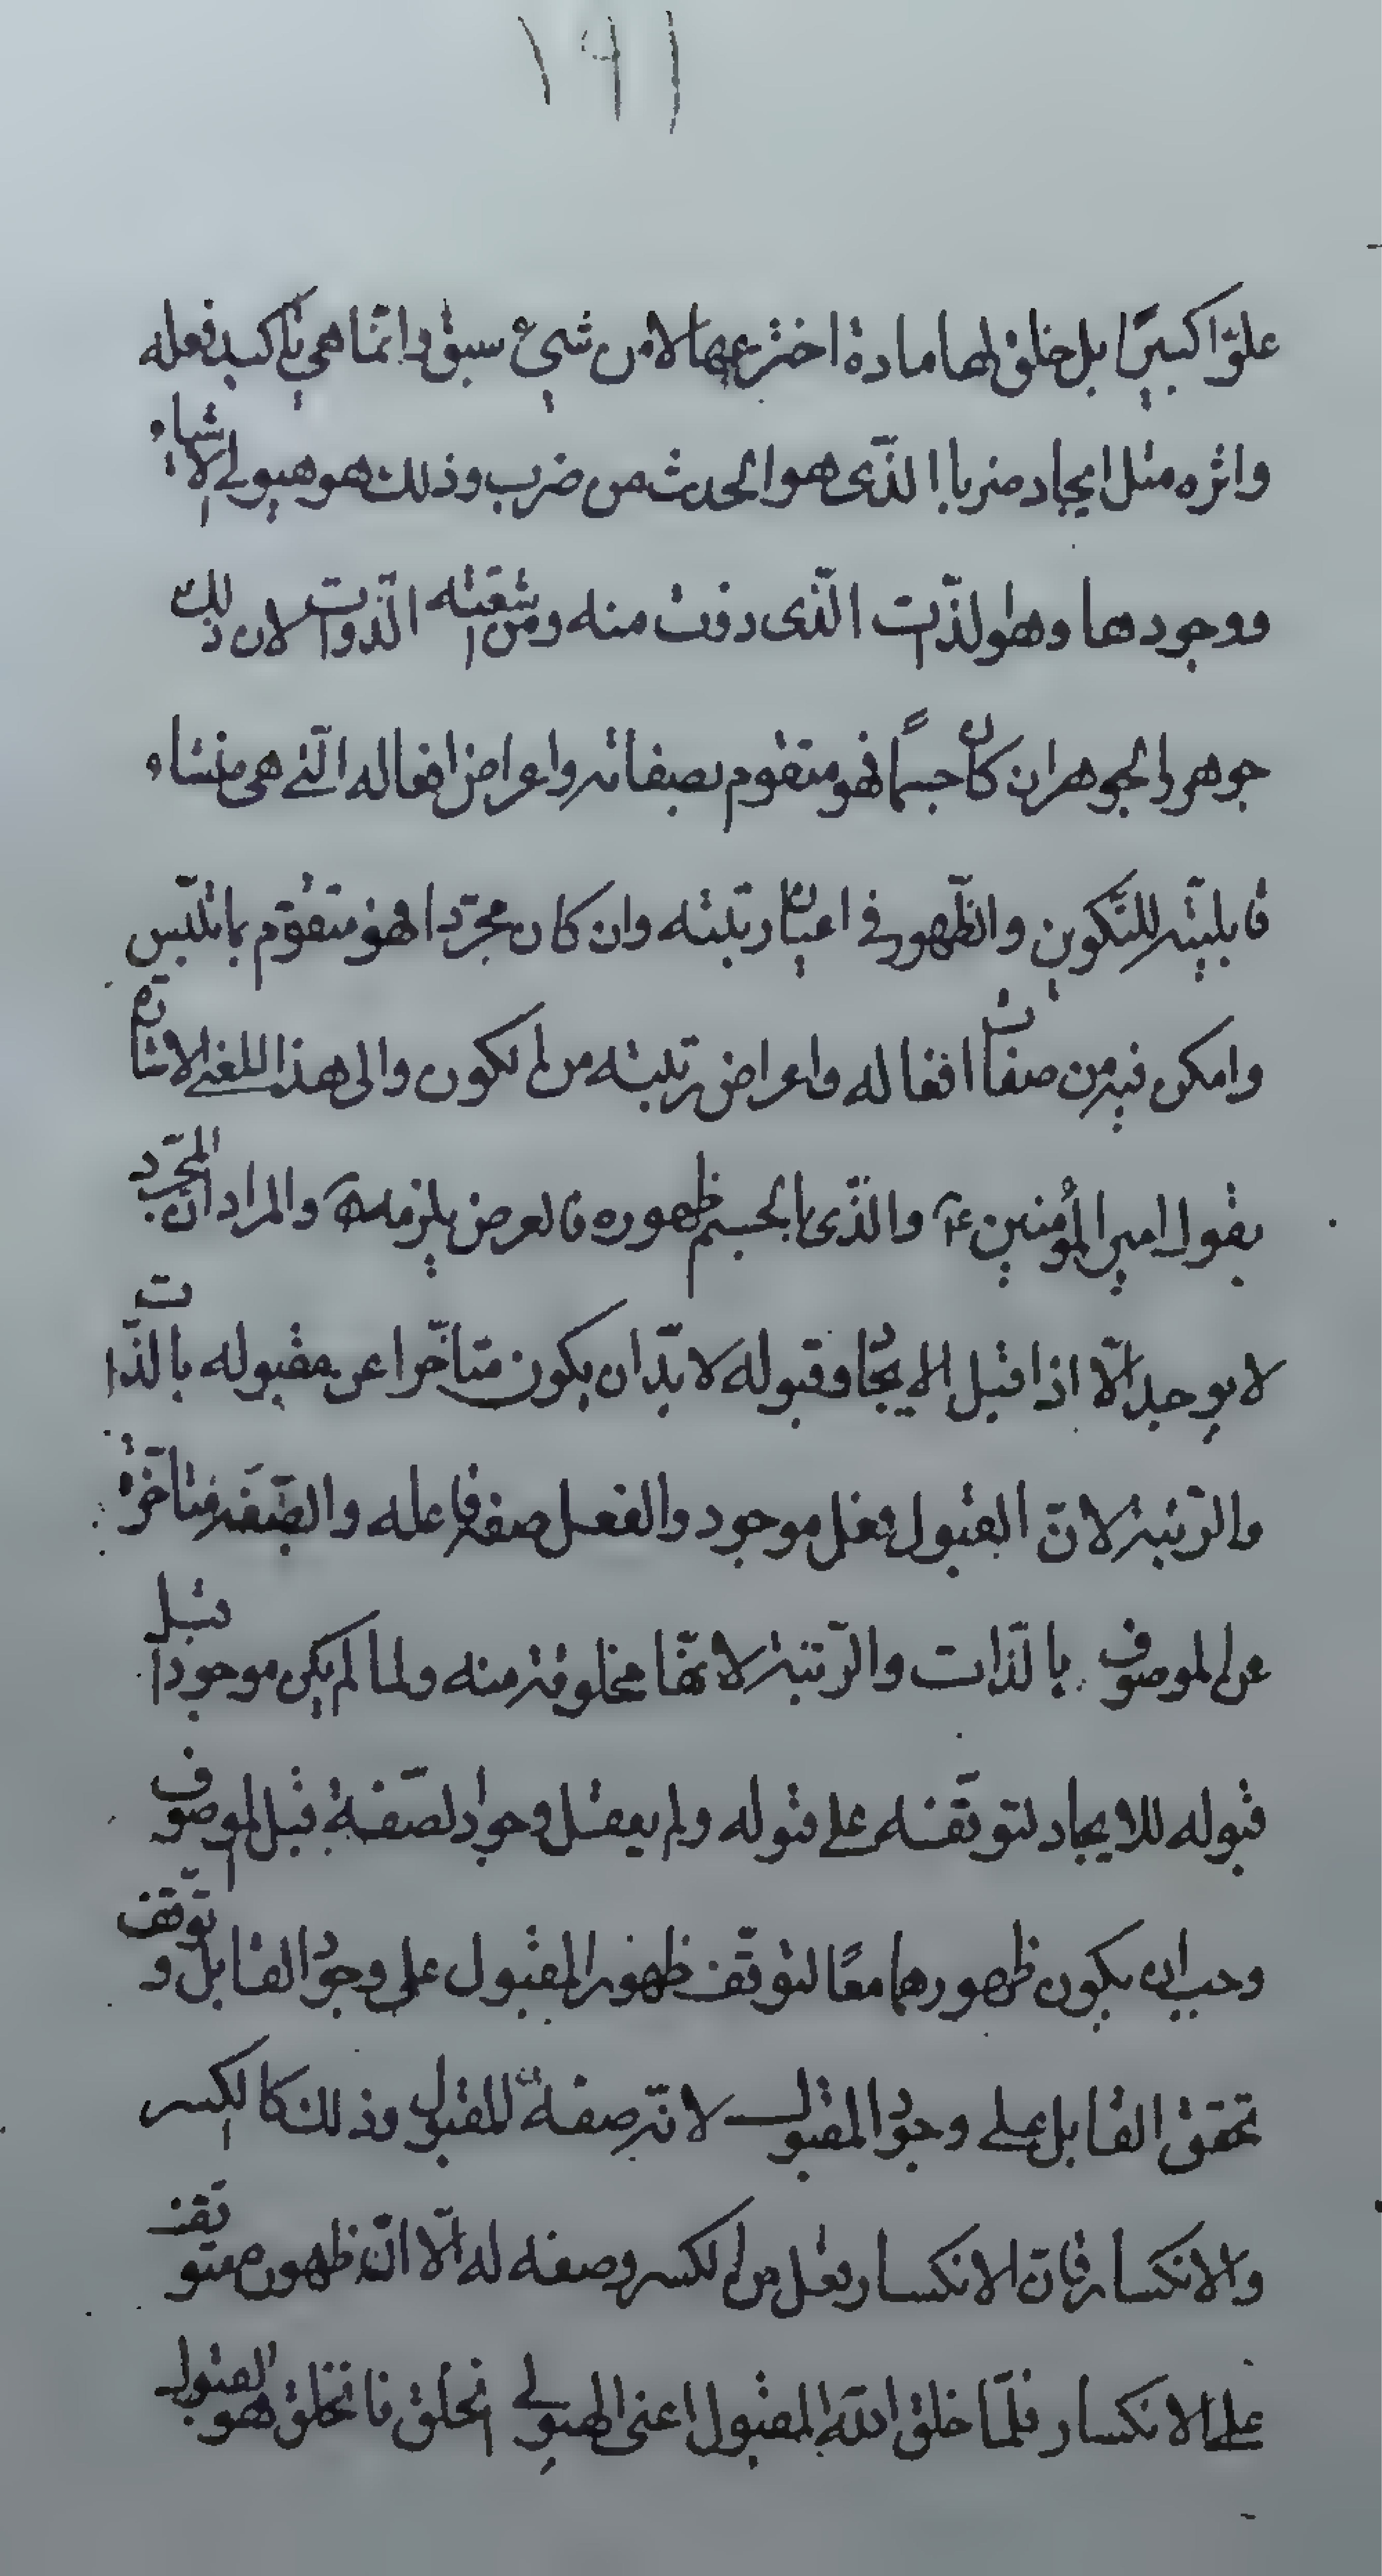 ١٩١
علوّا كبيرًا بل خلق لها مادة اخترعها لا من شيئ سبق وانّما هي تاكيد فعله
واثره مثل ايجاد ضربا الذّى هو الحدث من ضرب وذلك هو هيولى الاشياء
ووجودها وهو الذّات الذّى ذوتت منه ومن شعيته الذّوات لان ذلك
جوهر والجوهر ان كان جسمًا فهو متقوم بصفاته واعراض افعاله الّتى هى منشاء
قابليّته للتّكوين والظّهور فى اعيان رتبته وان كان مجرّدا فهو متقوّم بما تلبّس
وامكن فيه من صفات افعاله واعراض رتبته من لم يكون والى هذا المعنى الاشارة
بقول امير المؤمنين ع والذّى بالجسم ظهوره فالعرض يلزمه والمراد انّ المجرّد
لا يوجد الّا اذا قبل الايجاد وقبوله لا بدّ ان يكون متأخّرا عن مقبوله بالذّات
والرّتبة لانّ القبول فعل موجود والفعل صفة فاعله والصّفة متأخّرة
عن الموصوف بالذّات والرّتبة لانّها مخلوقة منه ولما لم يكن موجودا قبل
قبوله للايجاد لتوقّفه على قبوله ولم يعقل وجود الصّفة قبل الموصوف
وجب ان يكون ظهورهما معًا لتوقّف ظهور المقبول على وجود القابل و توقّف
تحقق القابل على وجود المقبول لانّه صفة للمقبول وذلك كالكسر
والانكسار فانّ الانكسار فعل من الكسر وصفه له الّا انّ ظهوره متوقف
على الانكسار فلمّا خلق اللّه المقبول اعنى الهيولى انخلق فانخلق هو القبول